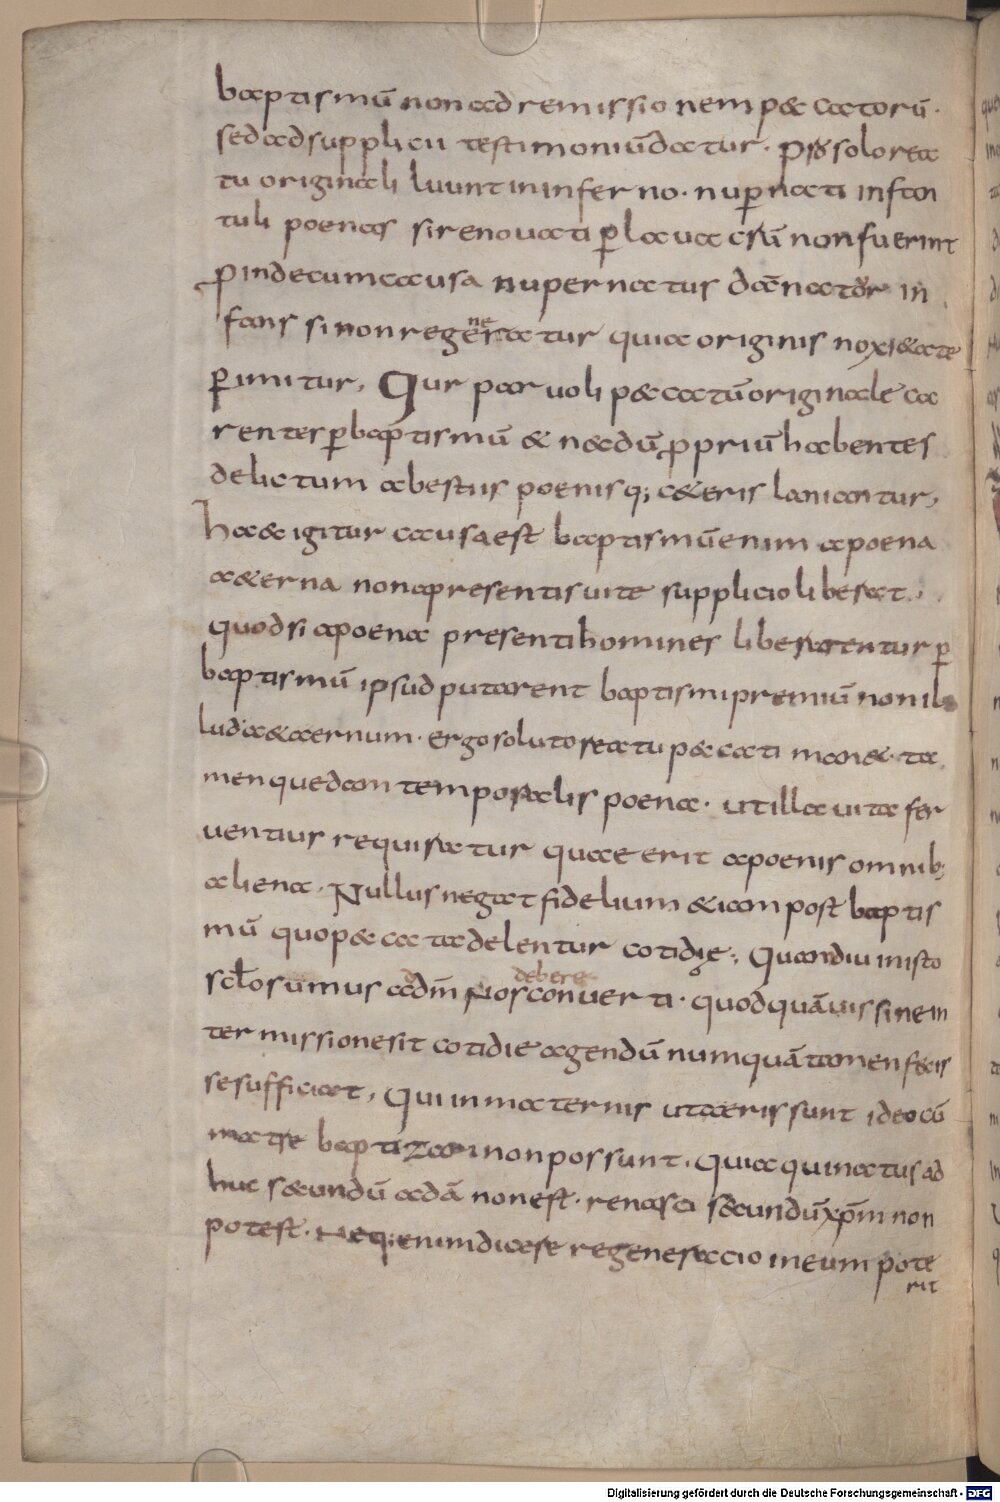 baptismū non ad remissionem p&catorū·
sed ad supplicii testimoniū datur· Pro solo rea
tu originali luunt in inferno· nuper nati infan
tuli poenas si renouati ꝑ lauacrū non fuerint
Proinde cum causa nuper natus damnatur in
fans si non regeneratur quia originis noxi&ate
ꝑimitur, Qur paruoli p&catū originale ca
renter ꝑ baptismū & necdū propriū habentes
delictum a bestiis poenisq; c&eris laniantur,
haec igitur causa est baptismū enim a poena
a&erna non a presentis uite supplicio liberat,
quod si a poena presenti homines liberarentur ꝑ
baptismū ipsud putarent baptismi premiū non il
lud a&ernum· ergo soluto reatu p&cati man&· ta
men quedam temporalis poena· ut illa uita fer
uentius requiratur quae erit a poenis omnib;
aliena· Nullus negat fidelium &iam post baptis
mū quo p&cata delentur cotidie; Quandiu in isto
sclo sumus ad dm̄ nos conuerti· quod quāuis sine in
debere
ter missione sit cotidie agendū numquā tamen fecis
se sufficiat, Qui in maternis uteris sunt ideo cū
matre baptizari non possunt, Quia qui natus ad
huc secundū adā non est· renasci secundū xp̄m non
potest· Neq; enim dicere regeneraccio in eum pote
rit
Digitalisierung gefördert durch die Deutsche Forschungsgemeinschaft - DFG